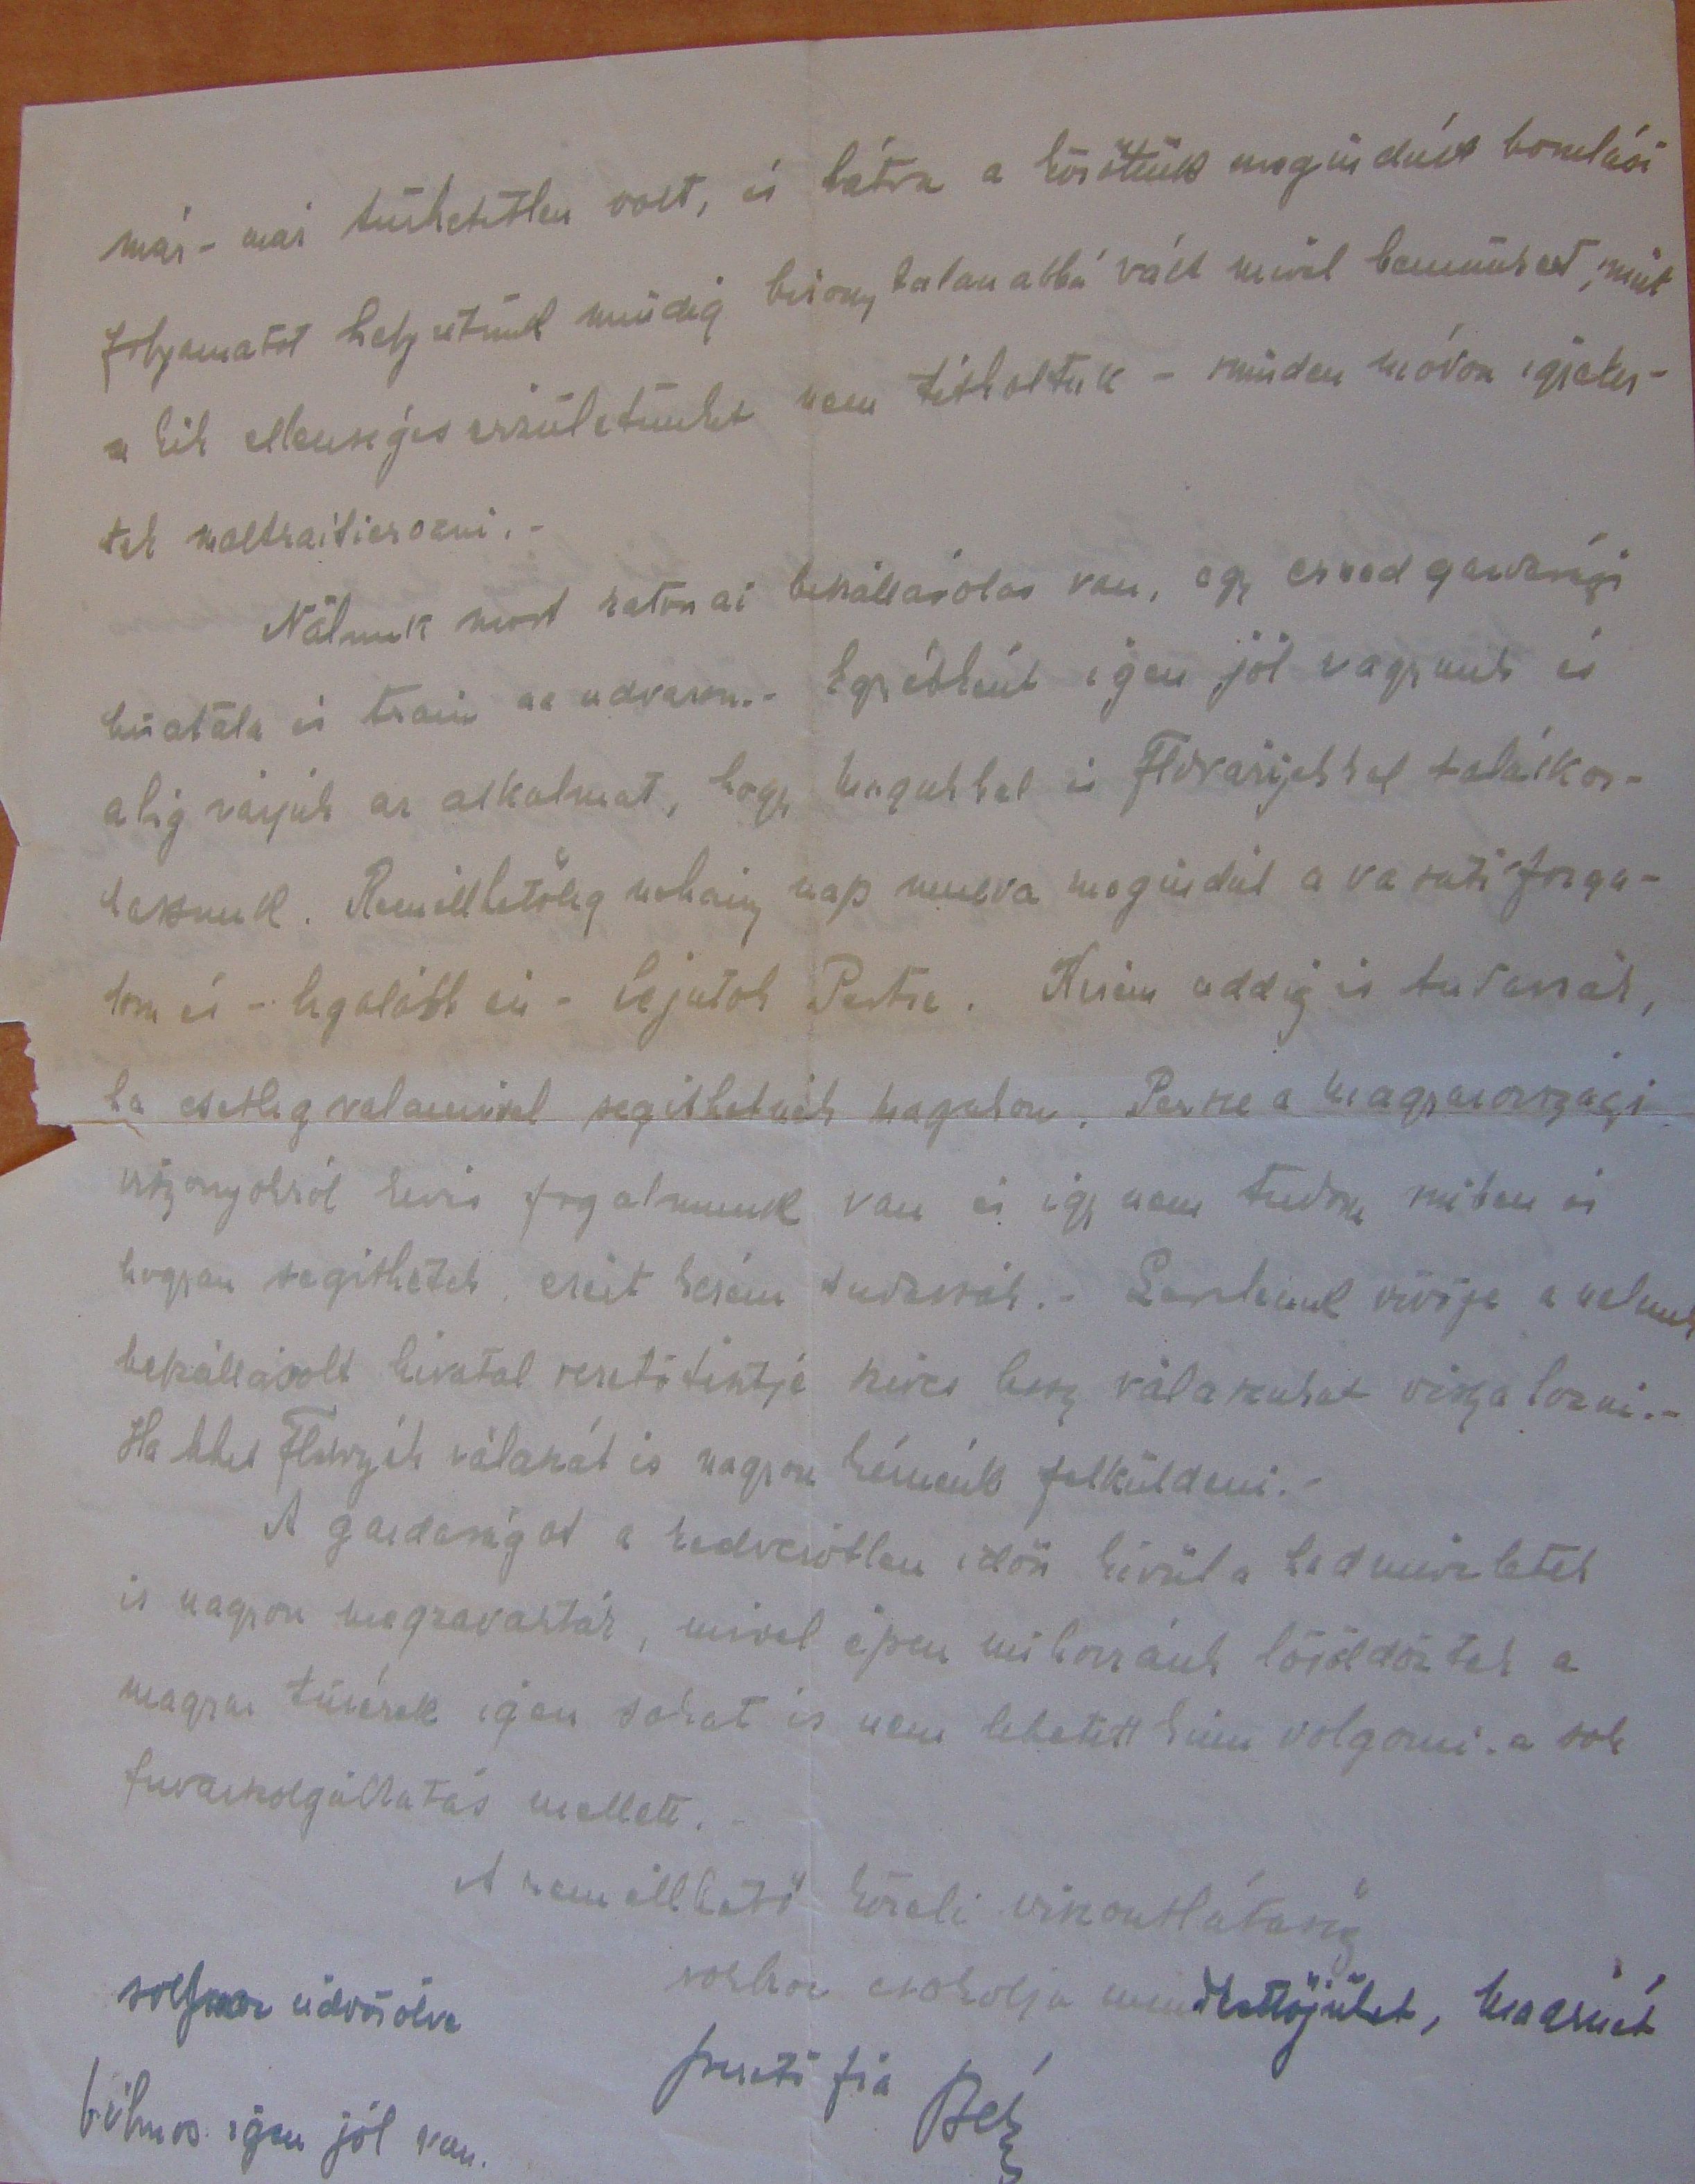 már-már tűrhetetlen volt, és bátra a köröttünk megindúlt bomlási
folyamatot helyzetünk mindig bizonytalanabbá vált mivel bennünket, mint
a kik ellenséges érzületünket nem titkoltuk - minden módon igyekez-
tek maltraitierozni.-
Nálunk most katonai beszállásolás van, egy ezred gazdasági
hivatala és train az udvaron.- Egyébként igen jól vagyunk és
alig várjuk az alkalmat, hogy magukkal és talákoz-
hassunk. Remélhetőleg nehány nap mulva megindúl a vasuti forga-
lom és - legalább én - lejutok Pestre. Kérem addig is tudassák,
ha esetleg valamivel segithetnék magukon. Persze a magyarországi
viszonyokról kevés fogalmunk van és igy nem tudom miben és
hogyan segithetek, ezért kérem tudassák.- Levelünk vivője a nálunk
beszállásolt hivatal vezetőtisztje szives lessz válaszukat vissza hozni.-
Ha lehet válaszát is nagyon kérnénk felküldeni.-
A gazdaságot a kedvezőtlen időn kívül a hadmüveletek
is nagyon megzavarták, mivel épen mi hozzánk lövöldöztek a
magyar tüzérek igen sokat is nem lehetett kinn dolgozni a sok
fuvarszolgáltatás mellett.-
A remélhető közeli viszontlátásig
sokszor csokolja mindkettőjüket, Madrinét
solymar üdvözölve
szerető fia Béla
Vilmos igen jól van.